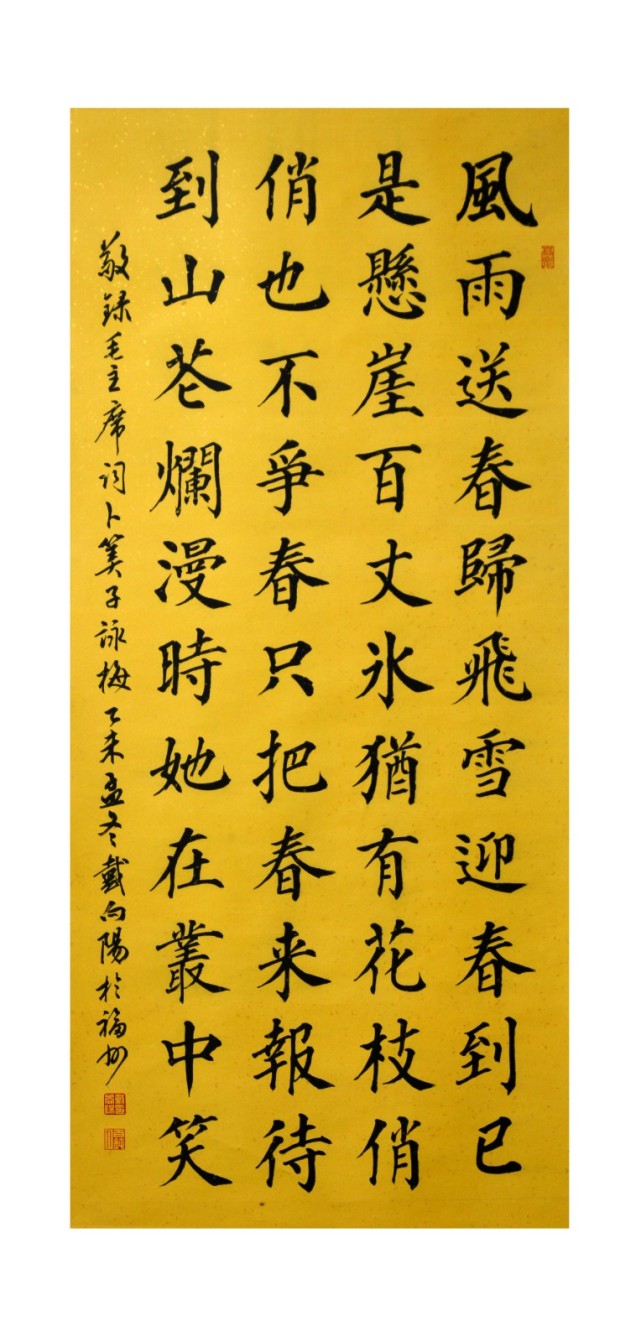 風雨送春歸飛雪迎春到已
是懸崖百丈氷猶有花枝俏
俏也不爭春只把春来報待
到山花爛漫時她在叢中笑
敬録毛主席词卜算子詠梅乙未孟冬戴向陽於福州